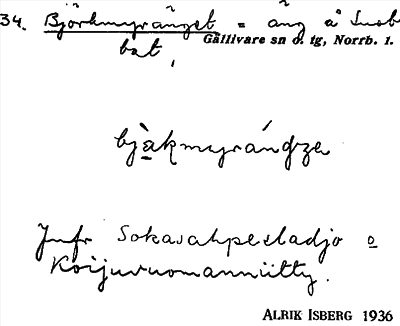 34. Björkmyränget = äng å
Gällivare sn o. tg, Norrb. l.
bat,
Jmfr Sokasahpeeladjo o
Koijuvuomanniitty.
ALRIK ISBERG 1936